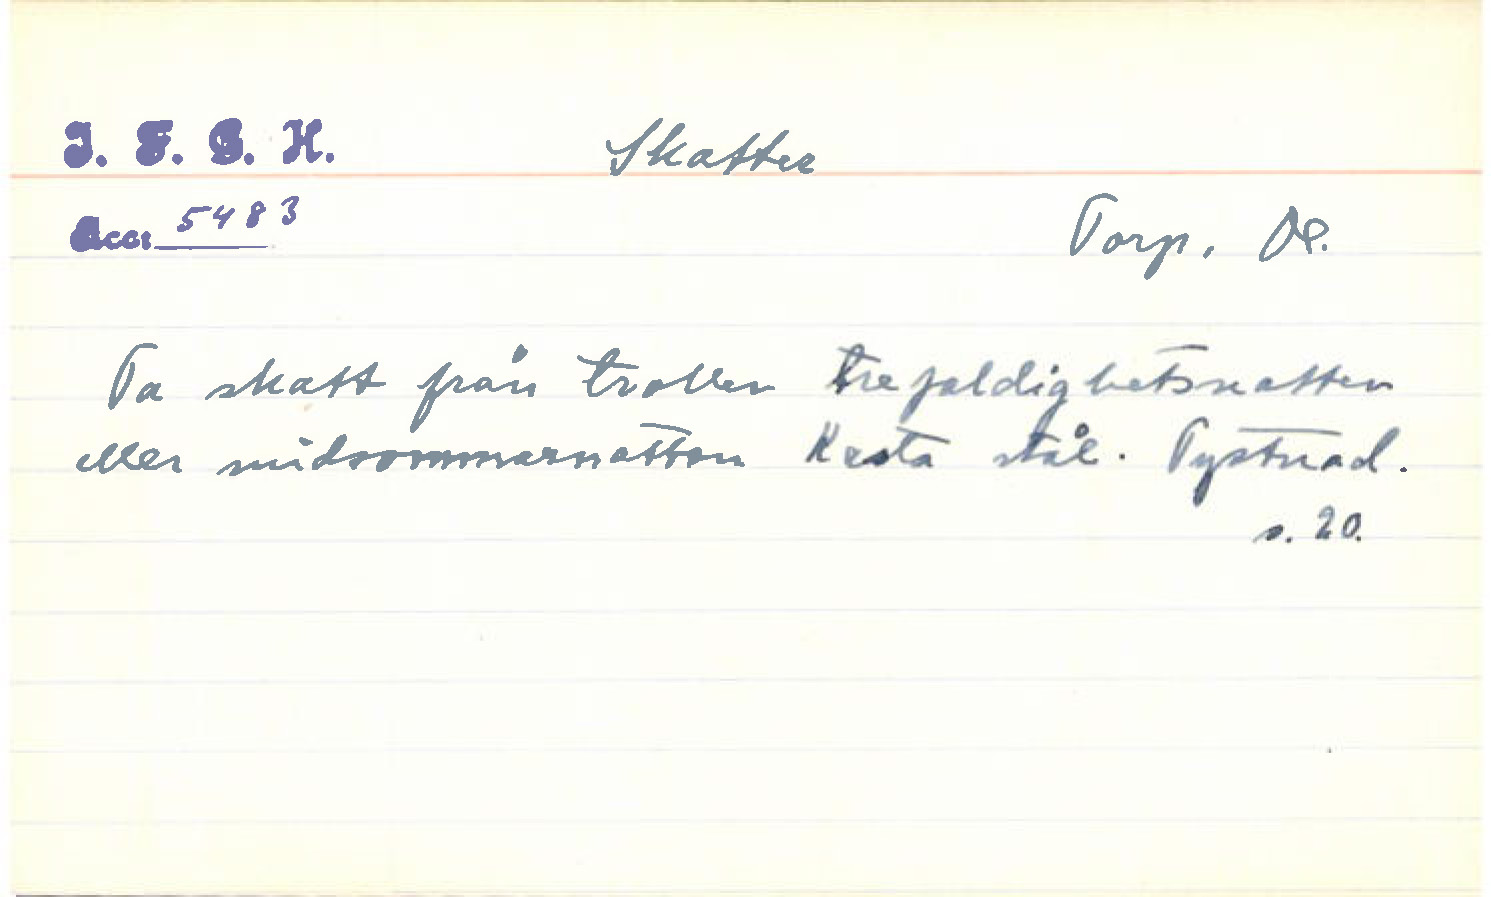 I. F. G. H.
Skatter
Acc: 5483
Torp, Dl.
Ta skatt från trollen trefaldighetsnatten
eller midsommarnatten Kasta stål. Tystnad.
s. 20.